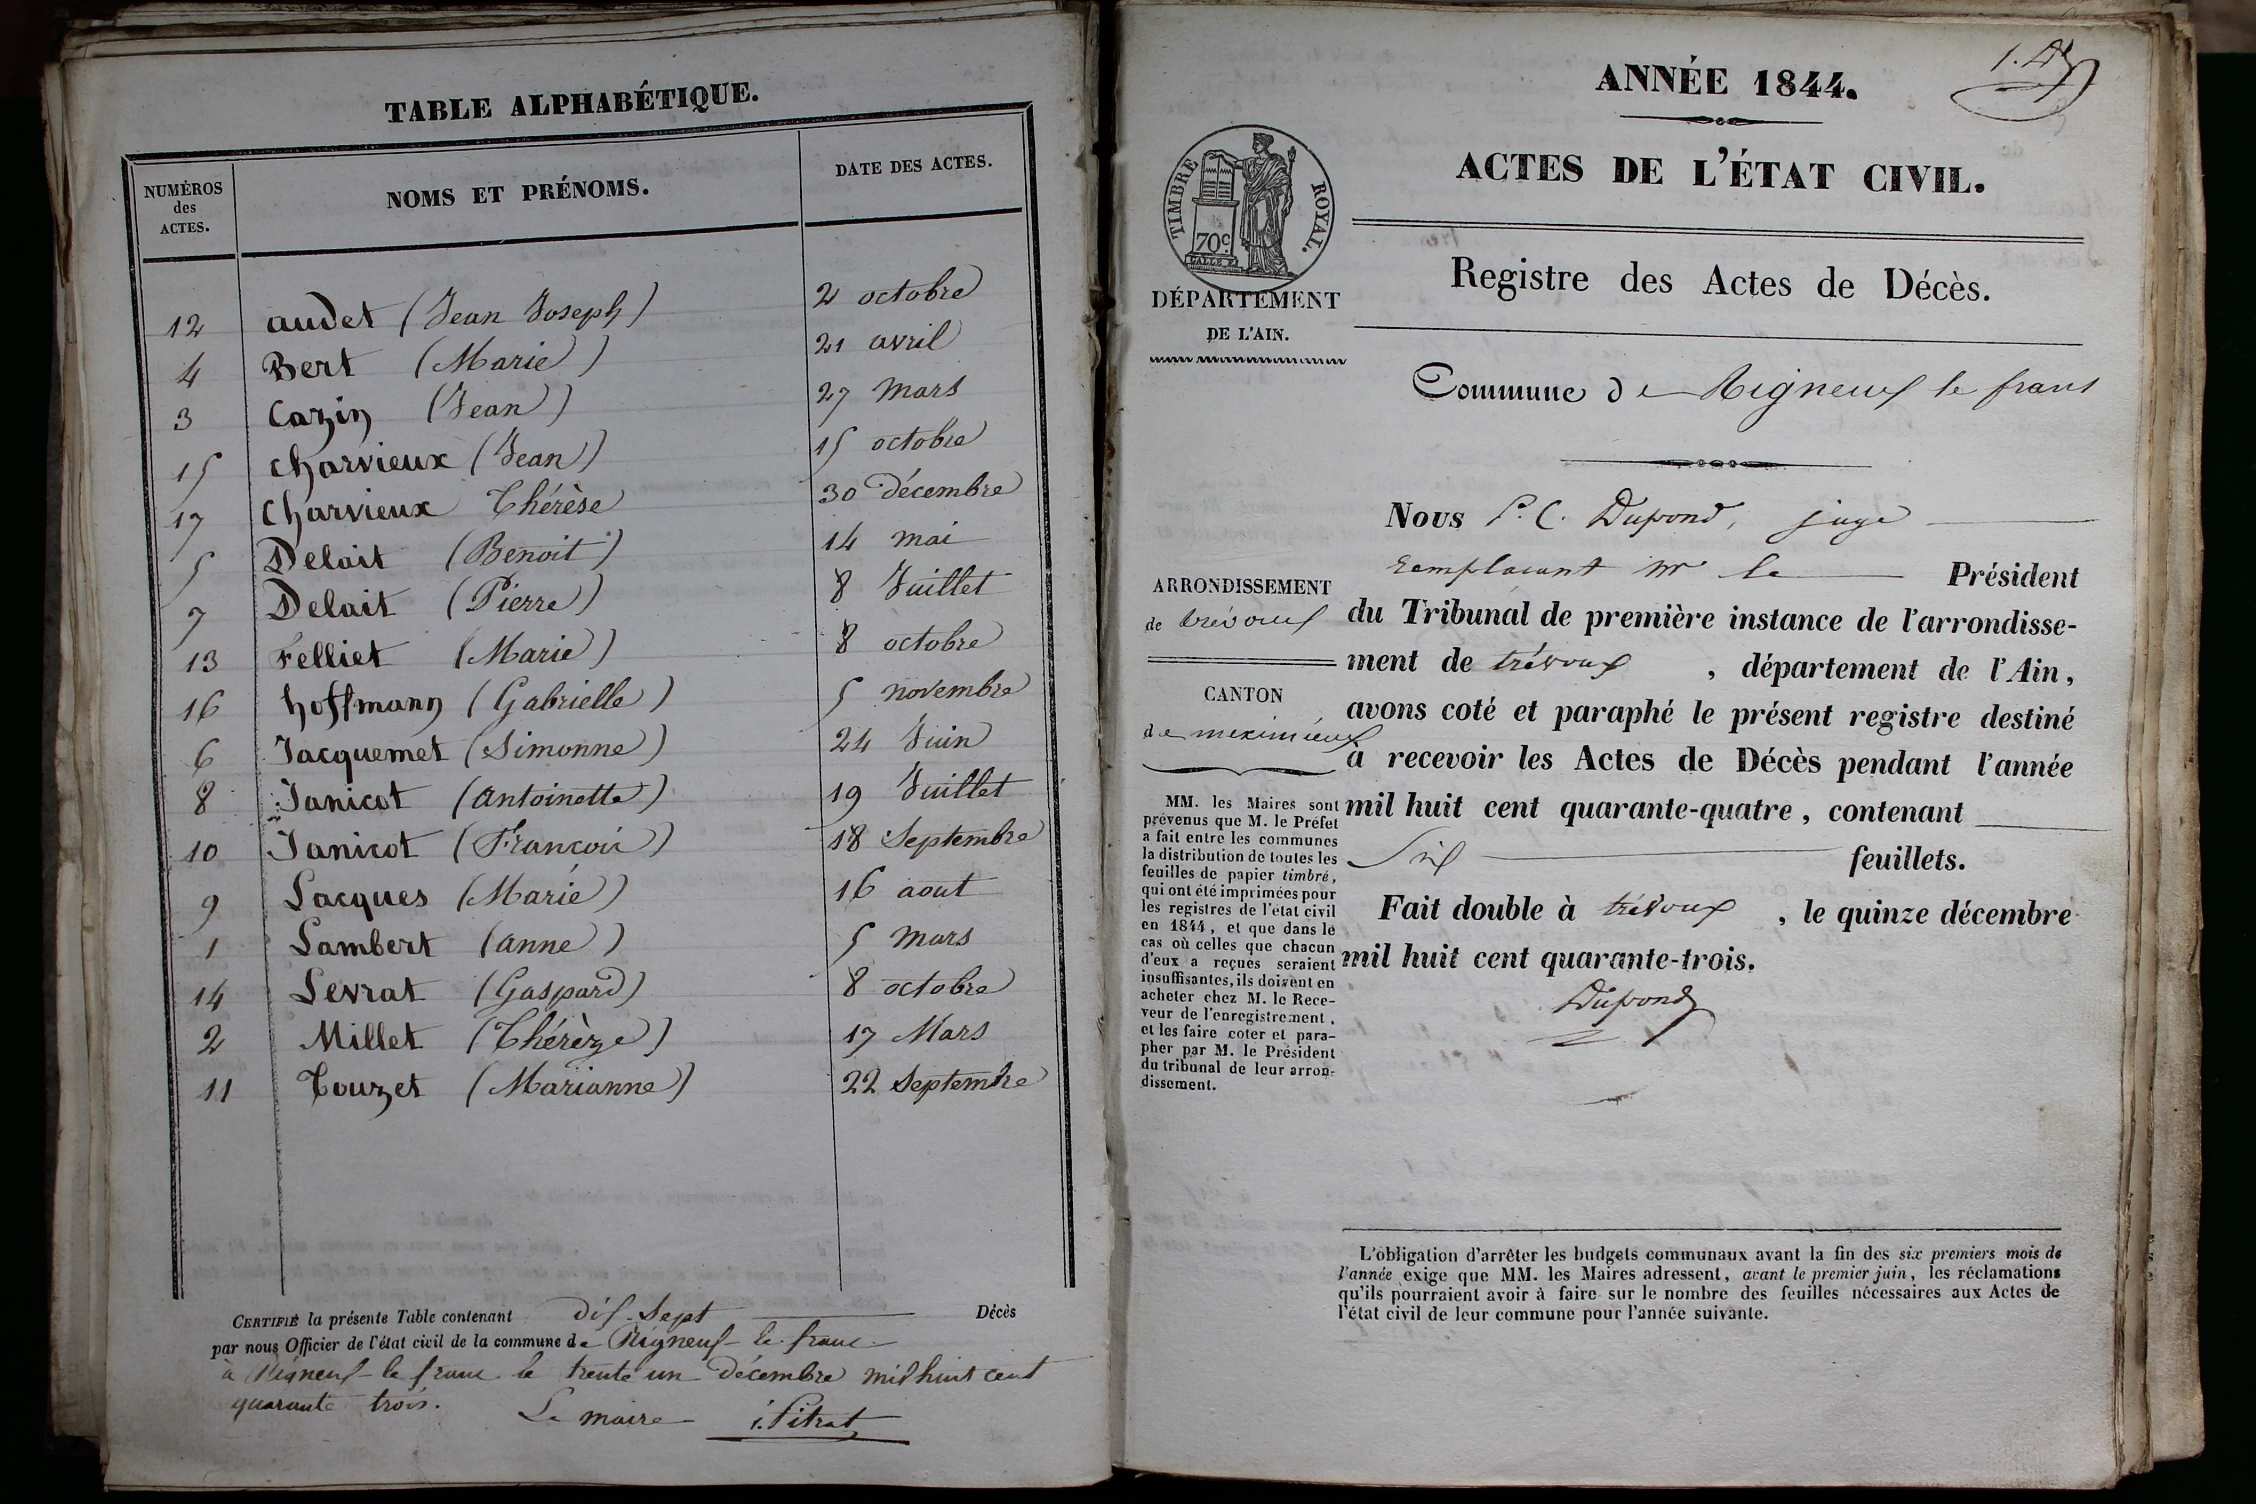 TABLE ALPHABÉTIQUE.
NUMÉROS
des
ACTES.
NOMS ET PRÉNOMS.
DATE DES ACTES.
12 audet (Jean Joseph) 2 octobre
4 Bert (Marie) 21 avril
3 Cazin (Jean) 27 Mars
15 Charvieux (Jean) 15 octobre
17 Charvieux Thérèse 30 décembre
5 Delait (Benoit) 14 mai
7 Delait (Pierre) 8 Juillet
13 Felliet (Marie) 8 octobre
16 hoffmann (Gabrielle) 5 novembre
6 Jacquemet (Simonne) 24 Juin
8 Janicot (antoinette) 19 Juillet
10 Janicot (Francois) 18 Septembre
9 Lacques (Marie) 16 aout
1 Lambert (anne) 5 Mars
14 Levrat (Gaspard) 8 octobre
2 Millet (Thérèze) 17 Mars
11 Touzet (Marianne) 22 Septembre
CERTIFIÉ la présente Table contenant dix Sept Décès
par nous Officier de l'état civil de la commune de Rigneux le franc
à Rigneux le franc le trente un décembre mil huit cent
quarante trois.
Le maire Pitrat
ANNÉE 1844.
ACTES DE L'ÉTAT CIVIL.
TIMBRE ROYAL.
70c.
DÉPARTEMENT
DE L'AIN.
Registre des Actes de Décès.
Commune de Rigneux le franc
Nous P. C. Dupond, juge
remplacant Mr le Président
du Tribunal de première instance de l'arrondisse-
ment de trévoux, département de l'Ain,
avons coté et paraphé le présent registre destiné
à recevoir les Actes de Décès pendant l'année
mil huit cent quarante-quatre, contenant
Six feuillets.
Fait double à trévoux, le quinze décembre
mil huit cent quarante-trois.
Dupond
ARRONDISSEMENT
de trévoux
CANTON
de meximieux
MM. les Maires sont
prévenus que M. le Préfet
a fait entre les communes
la distribution de toutes les
feuilles de papier timbré,
qui ont été imprimées pour
les registres de l'état civil
en 1844, et que dans le
cas où celles que chacun
d'eux a reçues seraient
insuffisantes, ils doivent en
acheter chez M. le Rece-
veur de l'enregistrement,
et les faire coter et para-
pher par M. le Président
du tribunal de leur arron-
dissement.
L'obligation d'arrêter les budgets communaux avant la fin des six premiers mois de
l'année exige que MM. les Maires adressent, avant le premier juin, les réclamations
qu'ils pourraient avoir à faire sur le nombre des feuilles nécessaires aux Actes de
l'état civil de leur commune pour l'année suivante.